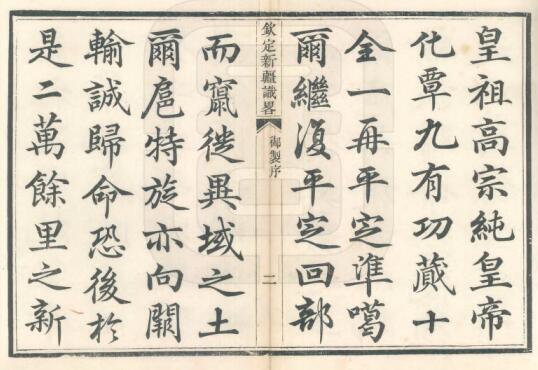 皇祖高宗純皇帝
化覃九有功蕆十
全一再平定準噶
爾繼復平定回部
欽定新疆識畧
御製序
二
而竄徙異域之土
爾扈特旋亦向闕
輸誠歸命恐後於
是二萬餘里之新